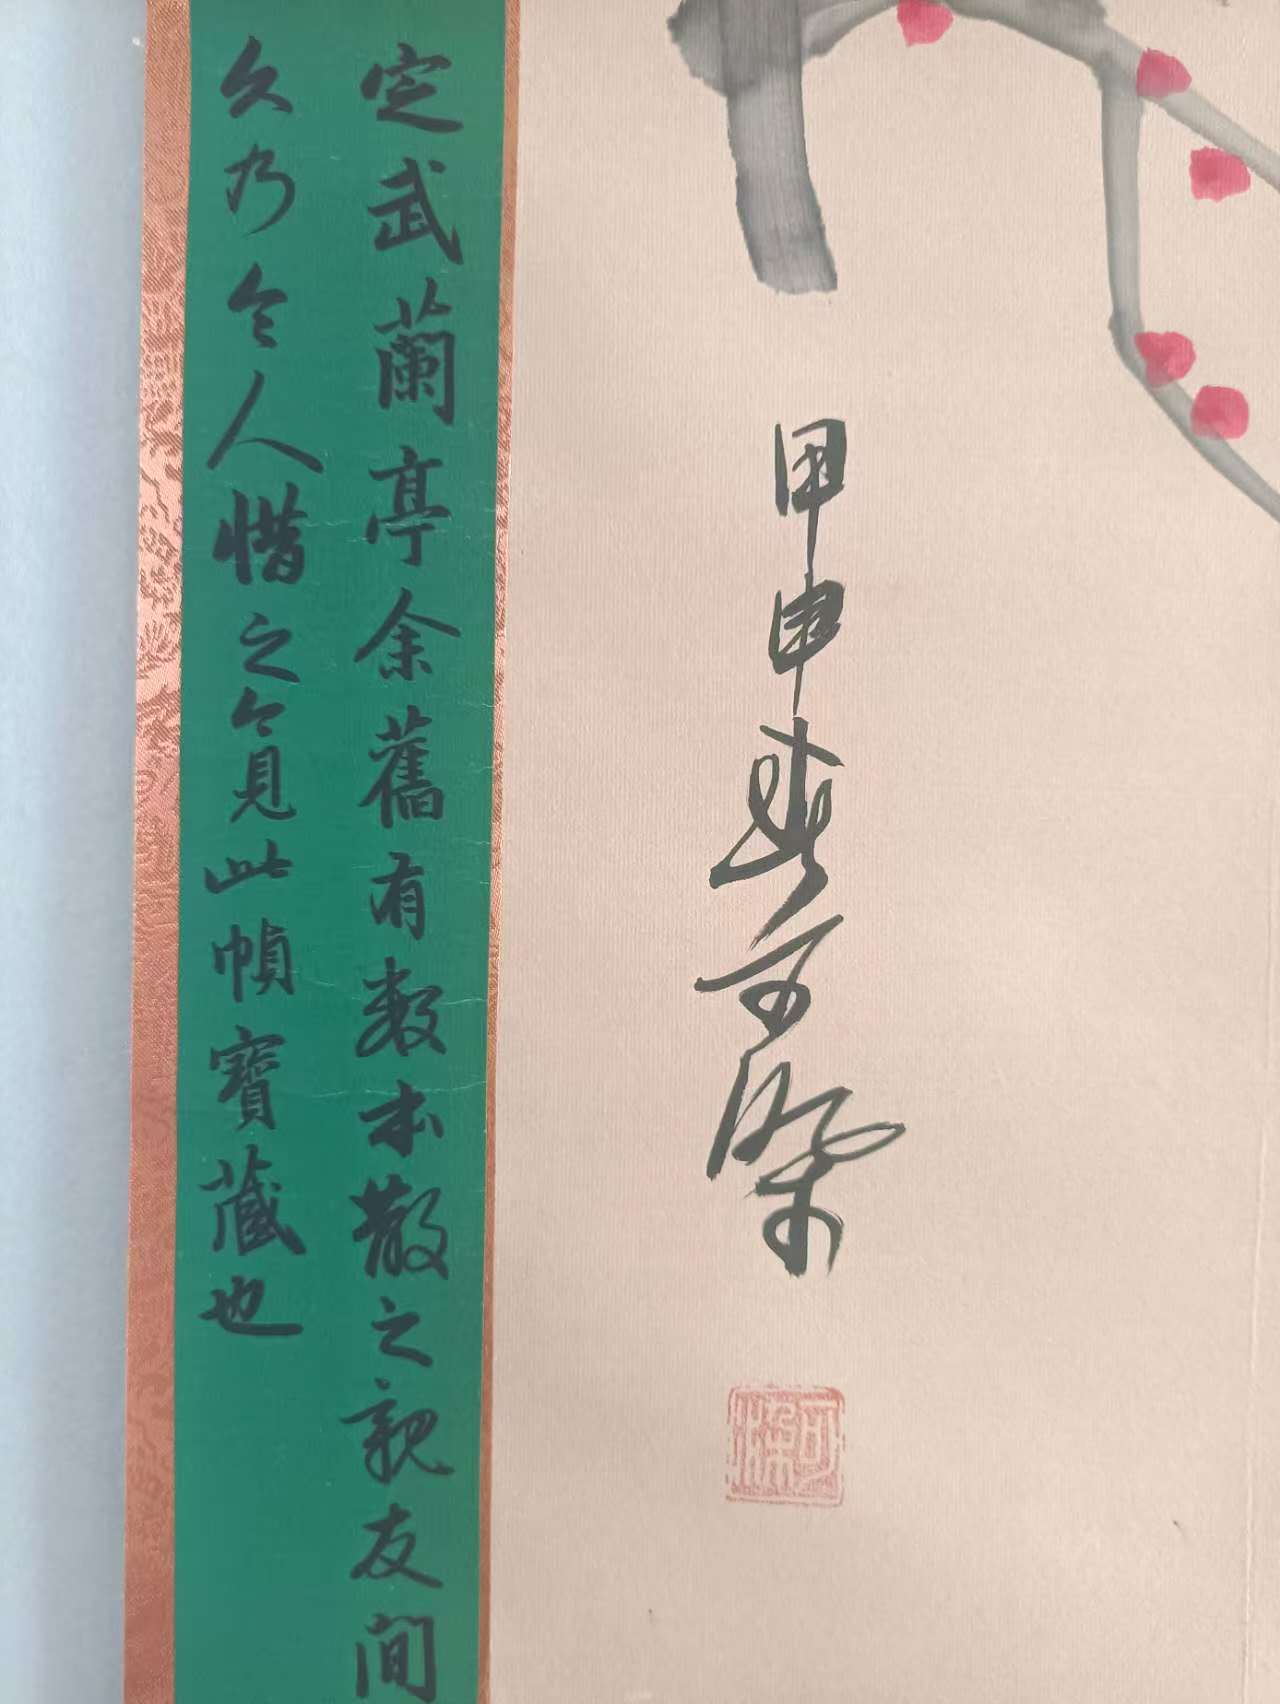 甲申春可染
可染
定武蘭亭余舊有數本散之親友間
久乃令人惜之今見此幀寶藏也